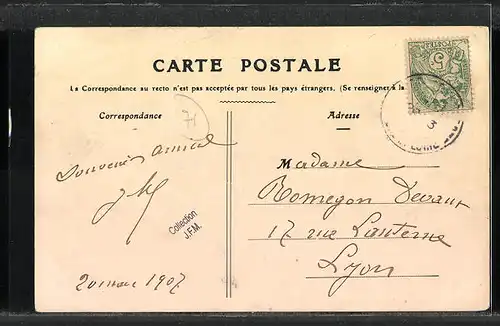 CARTE POSTALE
La Correspondance au recto n'est pas acceptée par tous les pays étrangers, (Se renseigner à la
Correspondance
Adresse
Souvenir amical
20 mars 1907
Collection
J.F.M.
Madame
Romegon Devaux
17 rue Lanterne
Lyon
5